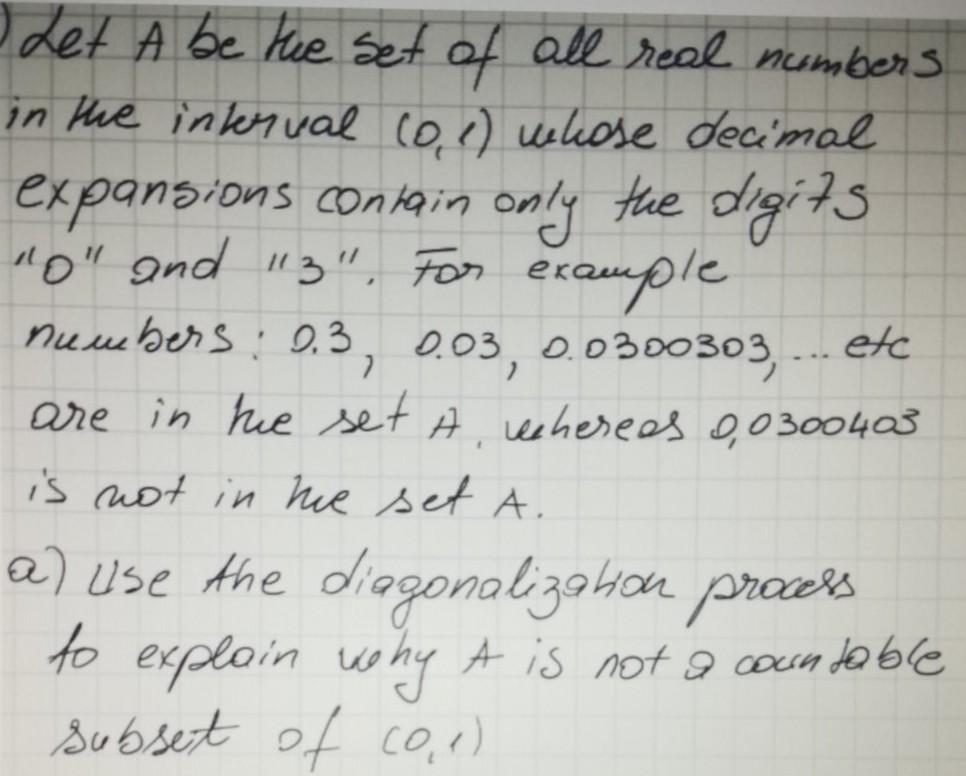 ) Let A be the set of all real numbers
in the interval (0,1) whose decimal
expansions contain only the digits
"0" and "3". For example
numbers: 0.3, 0.03, 0.0300303, ... etc
are in the set A, whereas 0,0300403
is not in the set A.
a) Use the diagonalization process
to explain why A is not a countable
subset of (0,1)